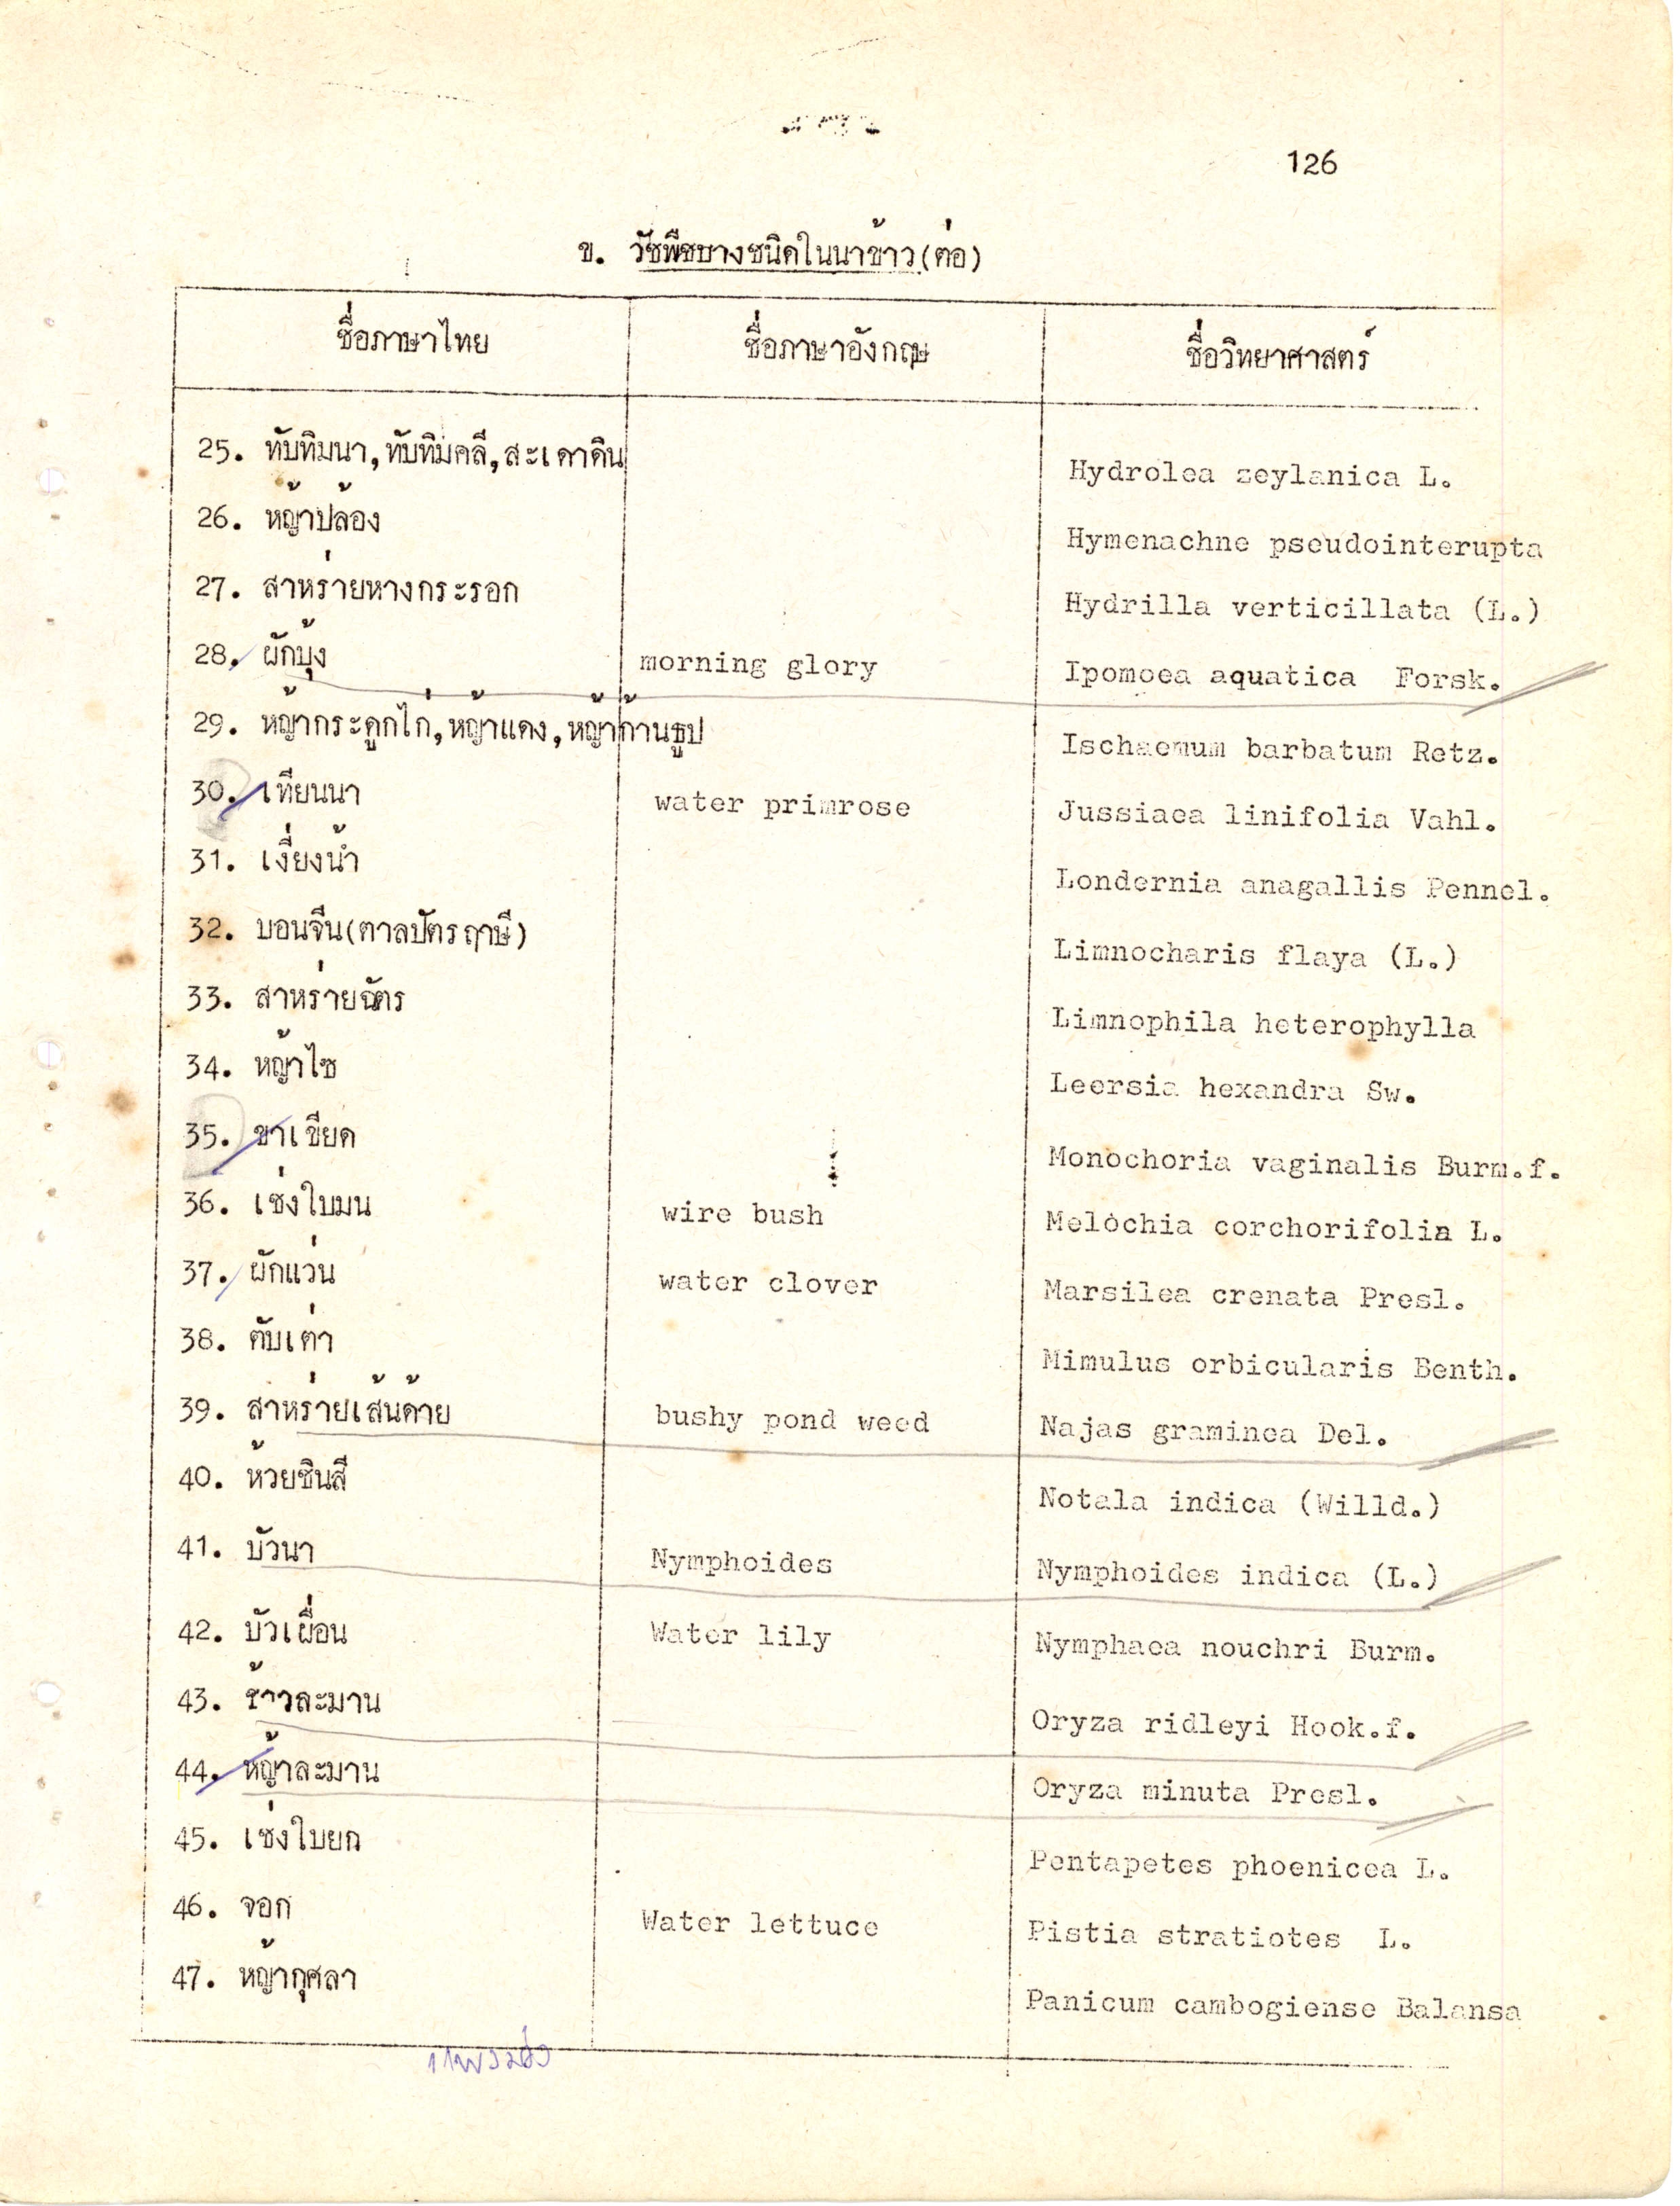 126
ข. วัชพืชบางชนิดในนาข้าว(ต่อ)
ชื่อภาษาไทย ชื่อภาษาอังกฤษ ชื่อวิทยาศาสตร์
25. ทับทิมนา,ทับทิมคลี,สะเดาดิน Hydrolea zeylanica L.
26. หญ้าปล้อง Hymenachne pseudointerupta
27. สาหร่ายหางกระรอก Hydrilla verticillata (L.)
28. ผักบุ้ง morning glory Ipomoea aquatica Forsk.
29. หญ้ากระดูกไก่,หญ้าแดง,หญ้าก้านธูป Ischaemum barbatum Retz.
30. เทียนนา water primrose Jussiaea linifolia Vahl.
31. เงี่ยงน้ำ Londernia anagallis Pennel.
32. บอนจีน(ตาลปัตรฤาษี) Limnocharis flaya (L.)
33. สาหร่ายฉัตร Limnophila heterophylla
34. หญ้าไซ Leersia hexandra Sw.
35. ขาเขียด Monochoria vaginalis Burm.f.
36. เซ่งใบมน wire bush Melochia corchorifolia L.
37. ผักแว่น water clover Marsilea crenata Presl.
38. ตับเต่า Mimulus orbicularis Benth.
39. สาหร่ายเส้นด้าย bushy pond weed Najas graminea Del.
40. ห้วยชินสี Notala indica (Willd.)
41. บัวนา Nymphoides Nymphoides indica (L.)
42. บัวเผื่อน Water lily Nymphaea nouchri Burm.
43. ข้าวละมาน Oryza ridleyi Hook.f.
44. หญ้าละมาน Oryza minuta Presl.
45. เซ่งใบยก Pentapetes phoenicea L.
46. จอก Water lettuce Pistia stratiotes L.
47. หญ้ากุศลา Panicum cambogiense Balansa